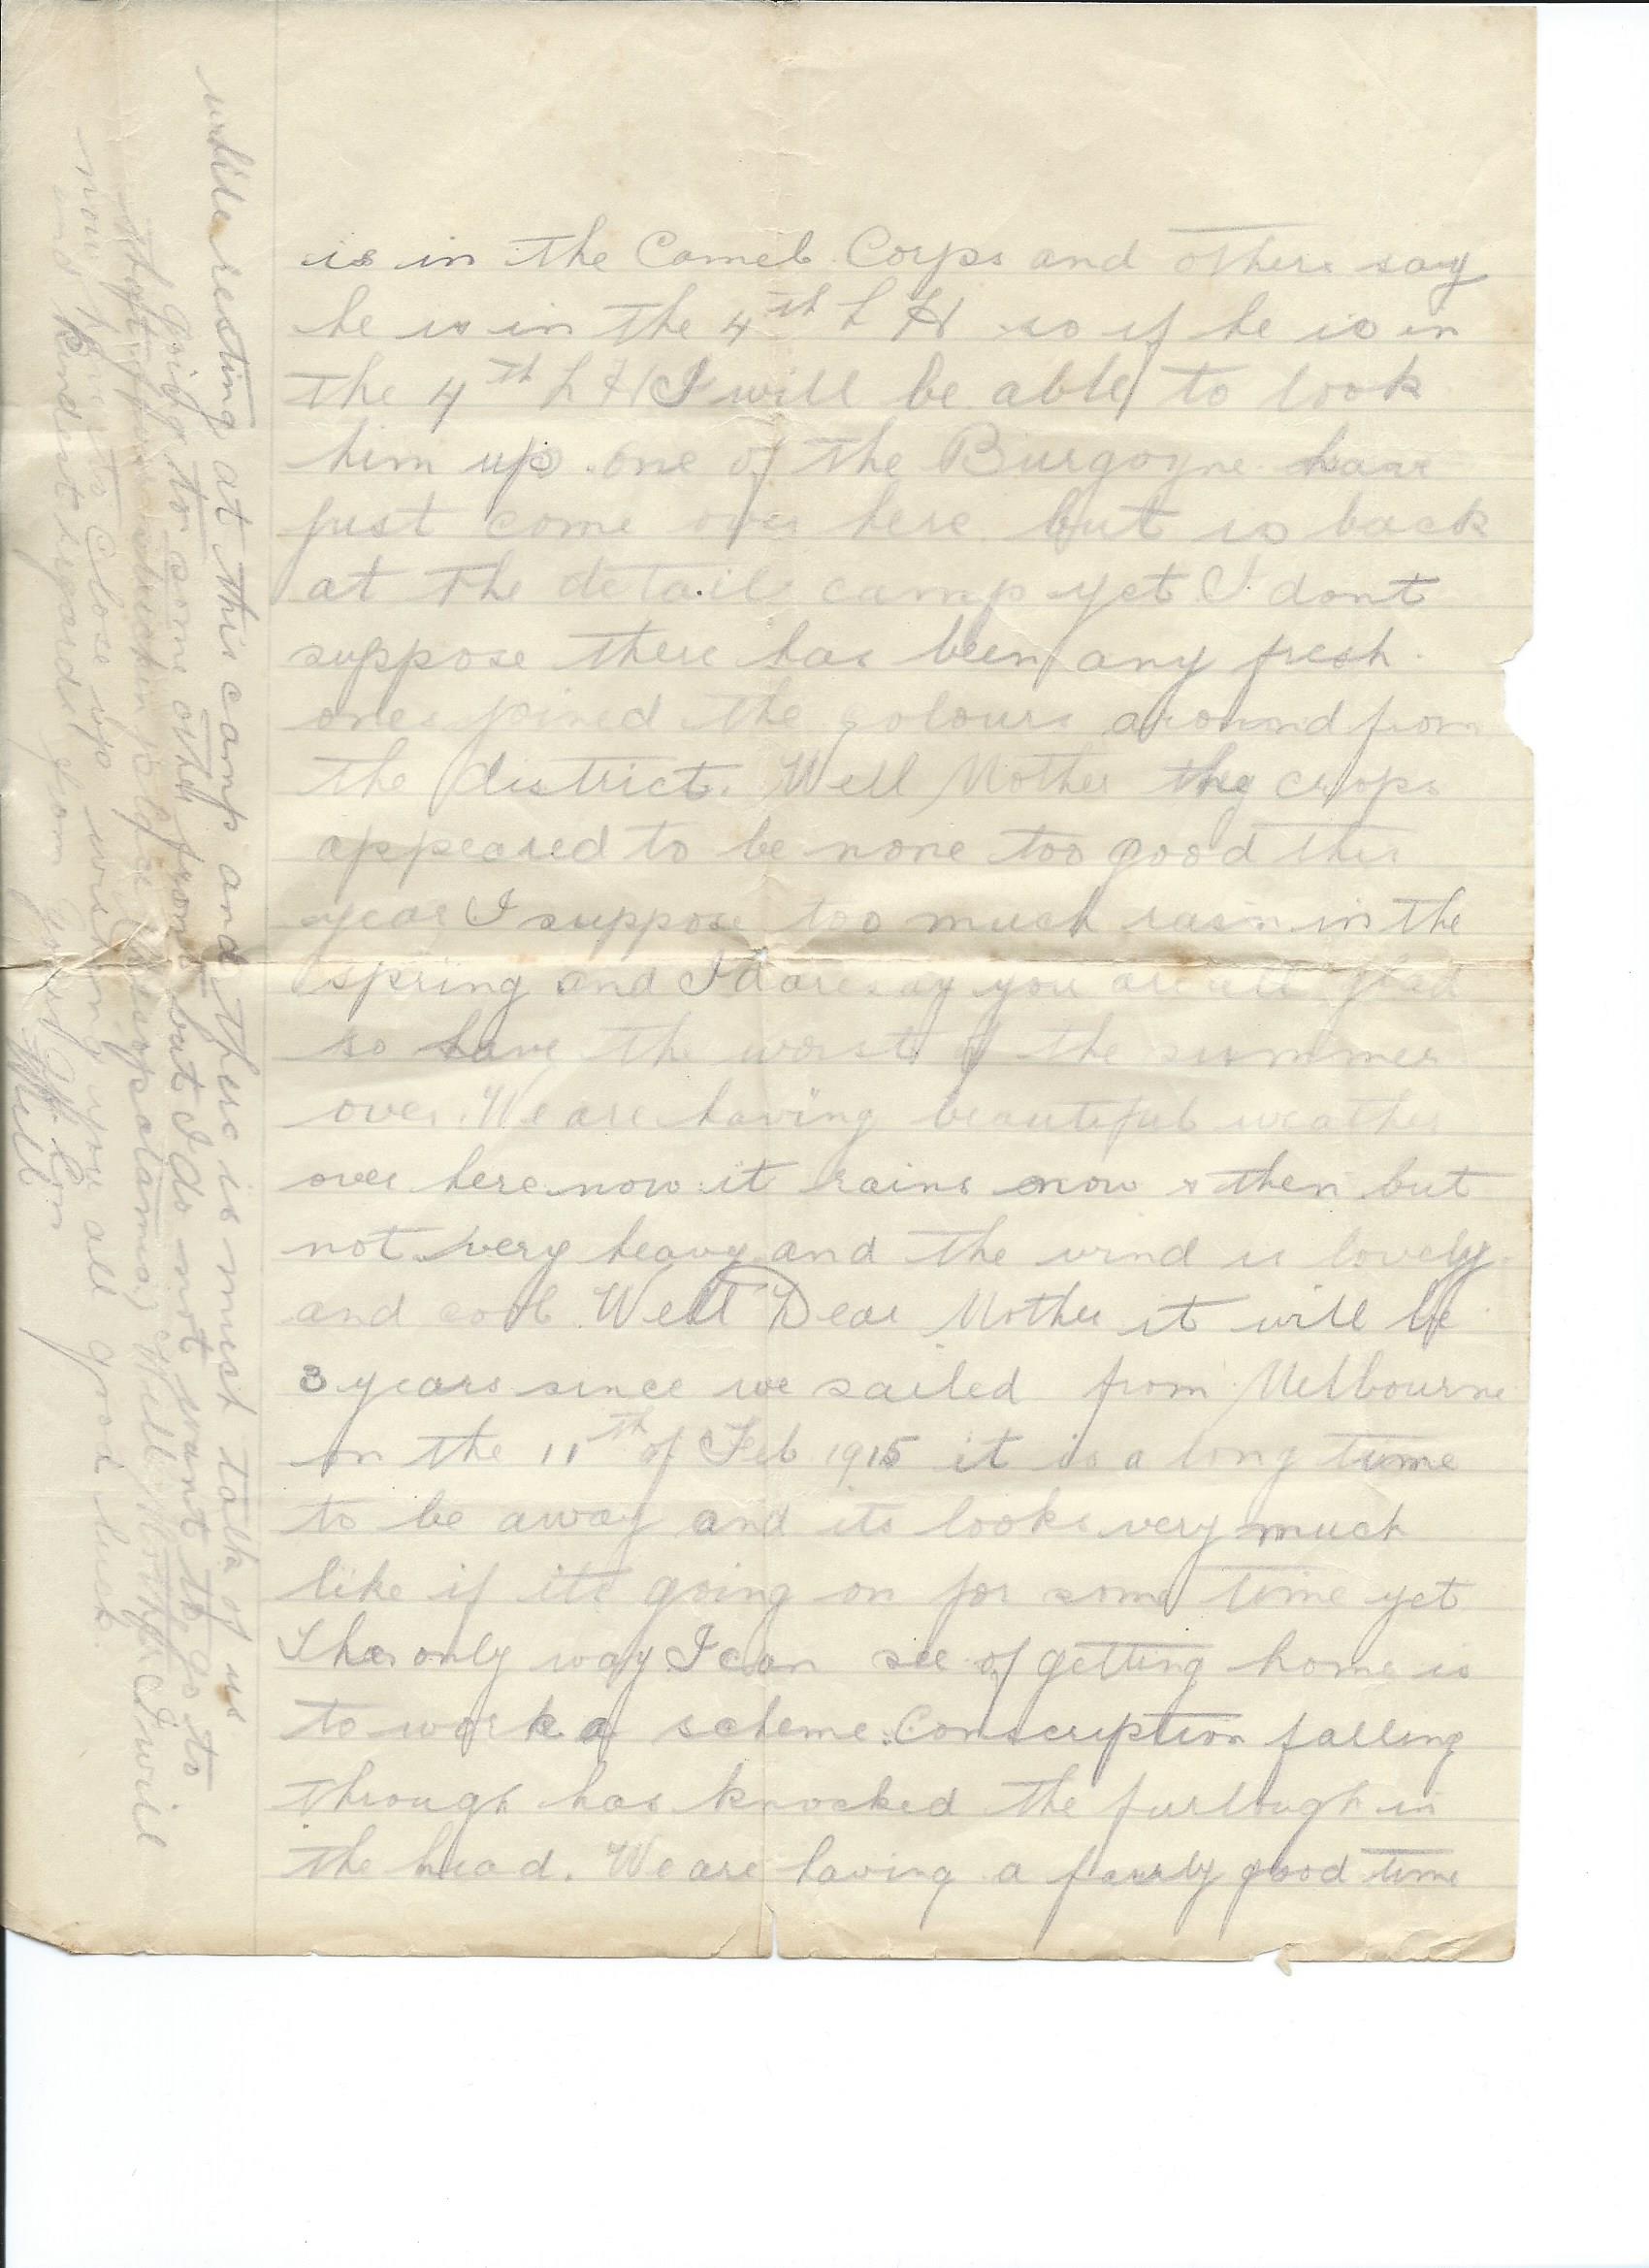 is in the Camel Corps and others say
he is in the 4th L H so if he is in
the 4th L H I will be able to look
him up. one of the Burgoyne have
just come over here but is back
at the detail camp yet I dont
suppose there has been any fresh
ones joined the colours around from
the district. Well Mother the crops
appeared to be none too good this
year I suppose too much rain in the
spring and I dare say you are all glad
so have the worst of the summer
over. We are having beautiful weather
over here now it rains now & then but
not very heavy and the wind is lovely
and cool Well Dear Mother it will be
3 years since we sailed from Melbourne
on the 11th of Feb 1915 it is a long time
to be away and its looks very much
like if its going on for some time yet
The only way I can see of getting home is
to work a scheme. Conscription falling
through has knocked the furlough in
the head. We are having a fairly good time
while resting at this camp and there is must talk of us
going to some other front but I do not want to go to
that place Mesopotamia, Well Mother I will
now have to close up wishing you all good luck.
and kindest regards from your Aff Son
Will